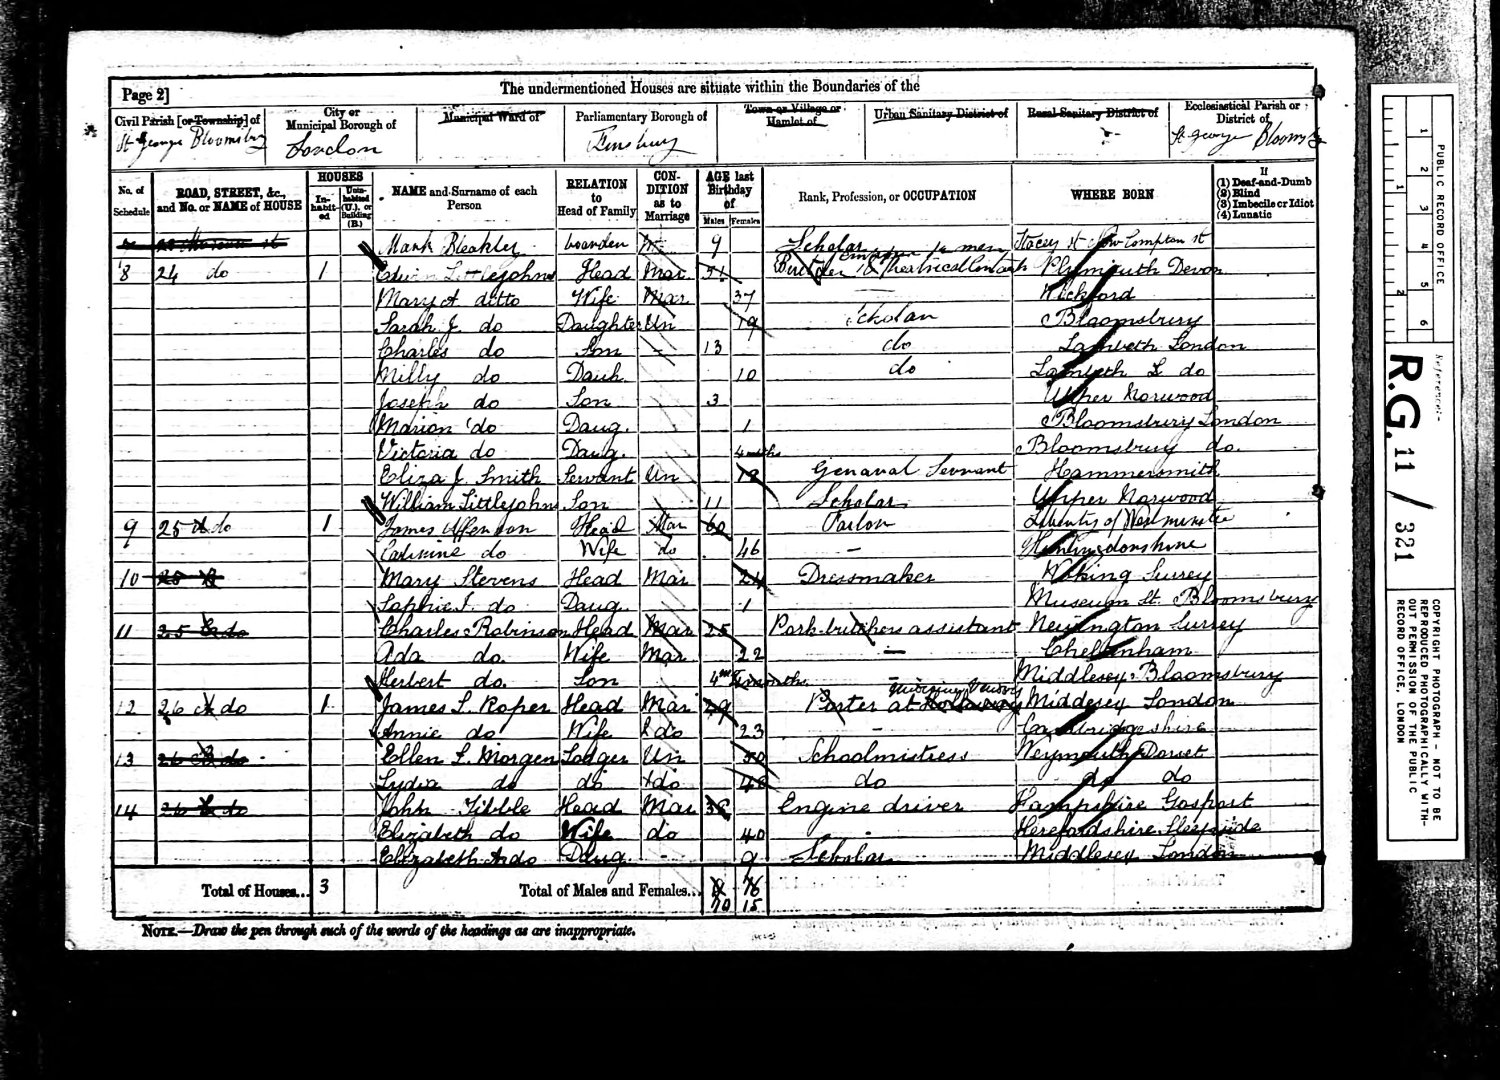 Page 2]
The undermentioned Houses are situate within the Boundaries of the
Civil Parish [or Township] of
City or Municipal Borough of
Municipal Ward of
Parliamentary Borough of
Town or Village or Hamlet of
Urban Sanitary District of
Rural Sanitary District of
Ecclesiastical Parish or District of
St George Bloomsbury
London
Finsbury
St George Bloomsby
No. of Schedule
ROAD, STREET, &c., and No. or NAME of HOUSE
HOUSES
Inhabited
Uninhabited (U.), or Building (B.)
NAME and Surname of each Person
RELATION to Head of Family
CONDITION as to Marriage
AGE last Birthday of
Males
Females
Rank, Profession, or OCCUPATION
WHERE BORN
If (1) Deaf-and-Dumb (2) Blind (3) Imbecile or Idiot (4) Lunatic
Mark Bleakley boarder 9 Scholar Stacey St New Compton St
8 24 do 1 Edwin Littlejohns Head Mar 51 Butcher & Theatrical Plymouth Devon
Mary A ditto Wife Mar 37 Wickford
Sarah J. do Daughter Un 19 Scholar Bloomsbury
Charles do Son - 13 do Lambeth London
Milly do Dauh 10 do Lambeth L do
Joseph do Son 3 Upper Norwood
Marion do Daug. 1 Bloomsbury London
Victoria do Daug. 4 mths Bloomsbury do.
Eliza J. Smith Servant Un General Servant Hammersmith
William Littlejohns Son 11 Scholar Upper Norwood
9 25 do 1 James Head Mar 60 Liberty of Westminster
Catherine do Wife do 46 - Huntingdonshire
10 25 B Mary Stevens Head Mar 24 Dressmaker Woking Surrey
Sophie J. do Daug. 1 Museum St. Bloomsbury
11 25 do Charles Robinson Head Mar 25 Pork butchers assistant Newington Surrey
Ada do. Wife Mar 22 - Cheltenham
Herbert do. Son 4 months - Middlesex Bloomsbury
12 26 A do 1 James S. Roper Head Mar 29 Porter at Middesex London
Annie do Wife do 23 - Cambridgeshire
13 26 B do Ellen F. Morgen Lodger Un 50 Schoolmistress Weymouth Dorset
Lydia do do do 48 do do do
14 26 do John Tibble Head Mar 38 Engine driver Hampshire Gosport
Elizabeth do Wife do 40 - Herefordshire
Elizabeth A do Daug - 9 Scholar Middlesex London
Total of Houses... 3
Total of Males and Females...
10 15
NOTE.—Draw the pen through such of the words of the headings as are inappropriate.
PUBLIC RECORD OFFICE
1 2 3 4 5 6
1 2
Reference:-
R.G. 11 / 321
COPYRIGHT PHOTOGRAPH - NOT TO BE REPRODUCED PHOTOGRAPHICALLY WITHOUT PERMISSION OF THE PUBLIC RECORD OFFICE, LONDON